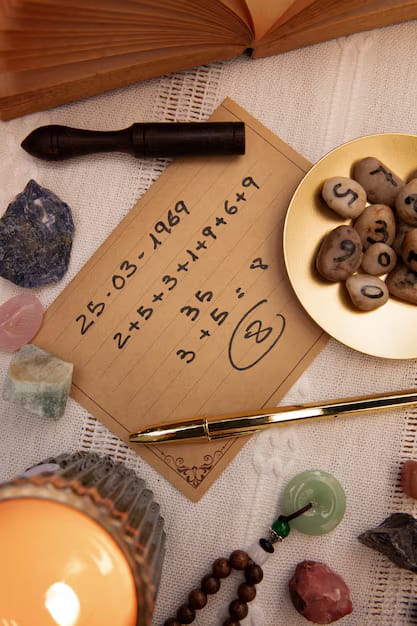 25-03-1969
2+5+3+1+9+6+9
35
3+5=8
8
5
7
3
9
0
0